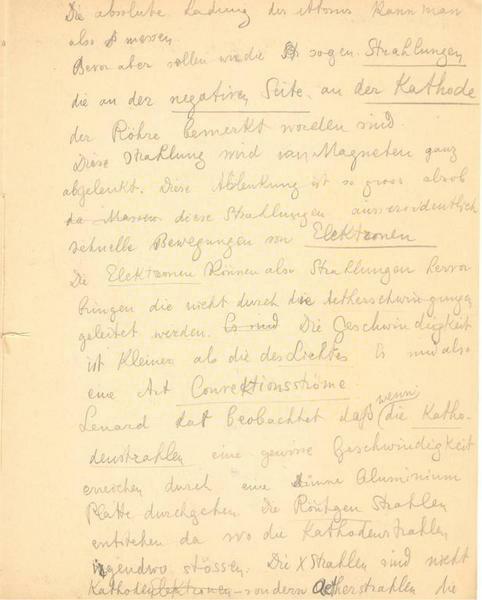 Die absolute Ladung des Atoms kann man
also messen.
Bevor aber sollen wir die sogen. Strahlungen
die an der negativen Seite, an der Kathode
der Röhre bemerkt worden sind.
Diese Strahlung wird van Magneten ganz
abgelenkt. Diese Ablenkung ist so gross alsob
da Massen diese Strahlungen ausserordentlich
schnelle Bewegungen von Elektronen
Die Elektronen können also Strahlungen hervor
bringen die nicht durch die Aetherschwingungen
geleitet werden. Es sind Die Geschwindigkeit
ist kleiner als die des Lichtes Es sind also
eine Art Convektionsströme
Lenard hat beobachtet daß wenn die Katho-
denstrahlen eine gewisse Geschwindigkeit
erreichen durch eine dünne Aluminium
Platte durchgehen Die Röntgen Strahlen
entstehen da wo die Kathodenstrahlen
irgendwo stössen. Die X Strahlen sind nicht
Kathodenelektronen - sondern Aetherstrahlen die